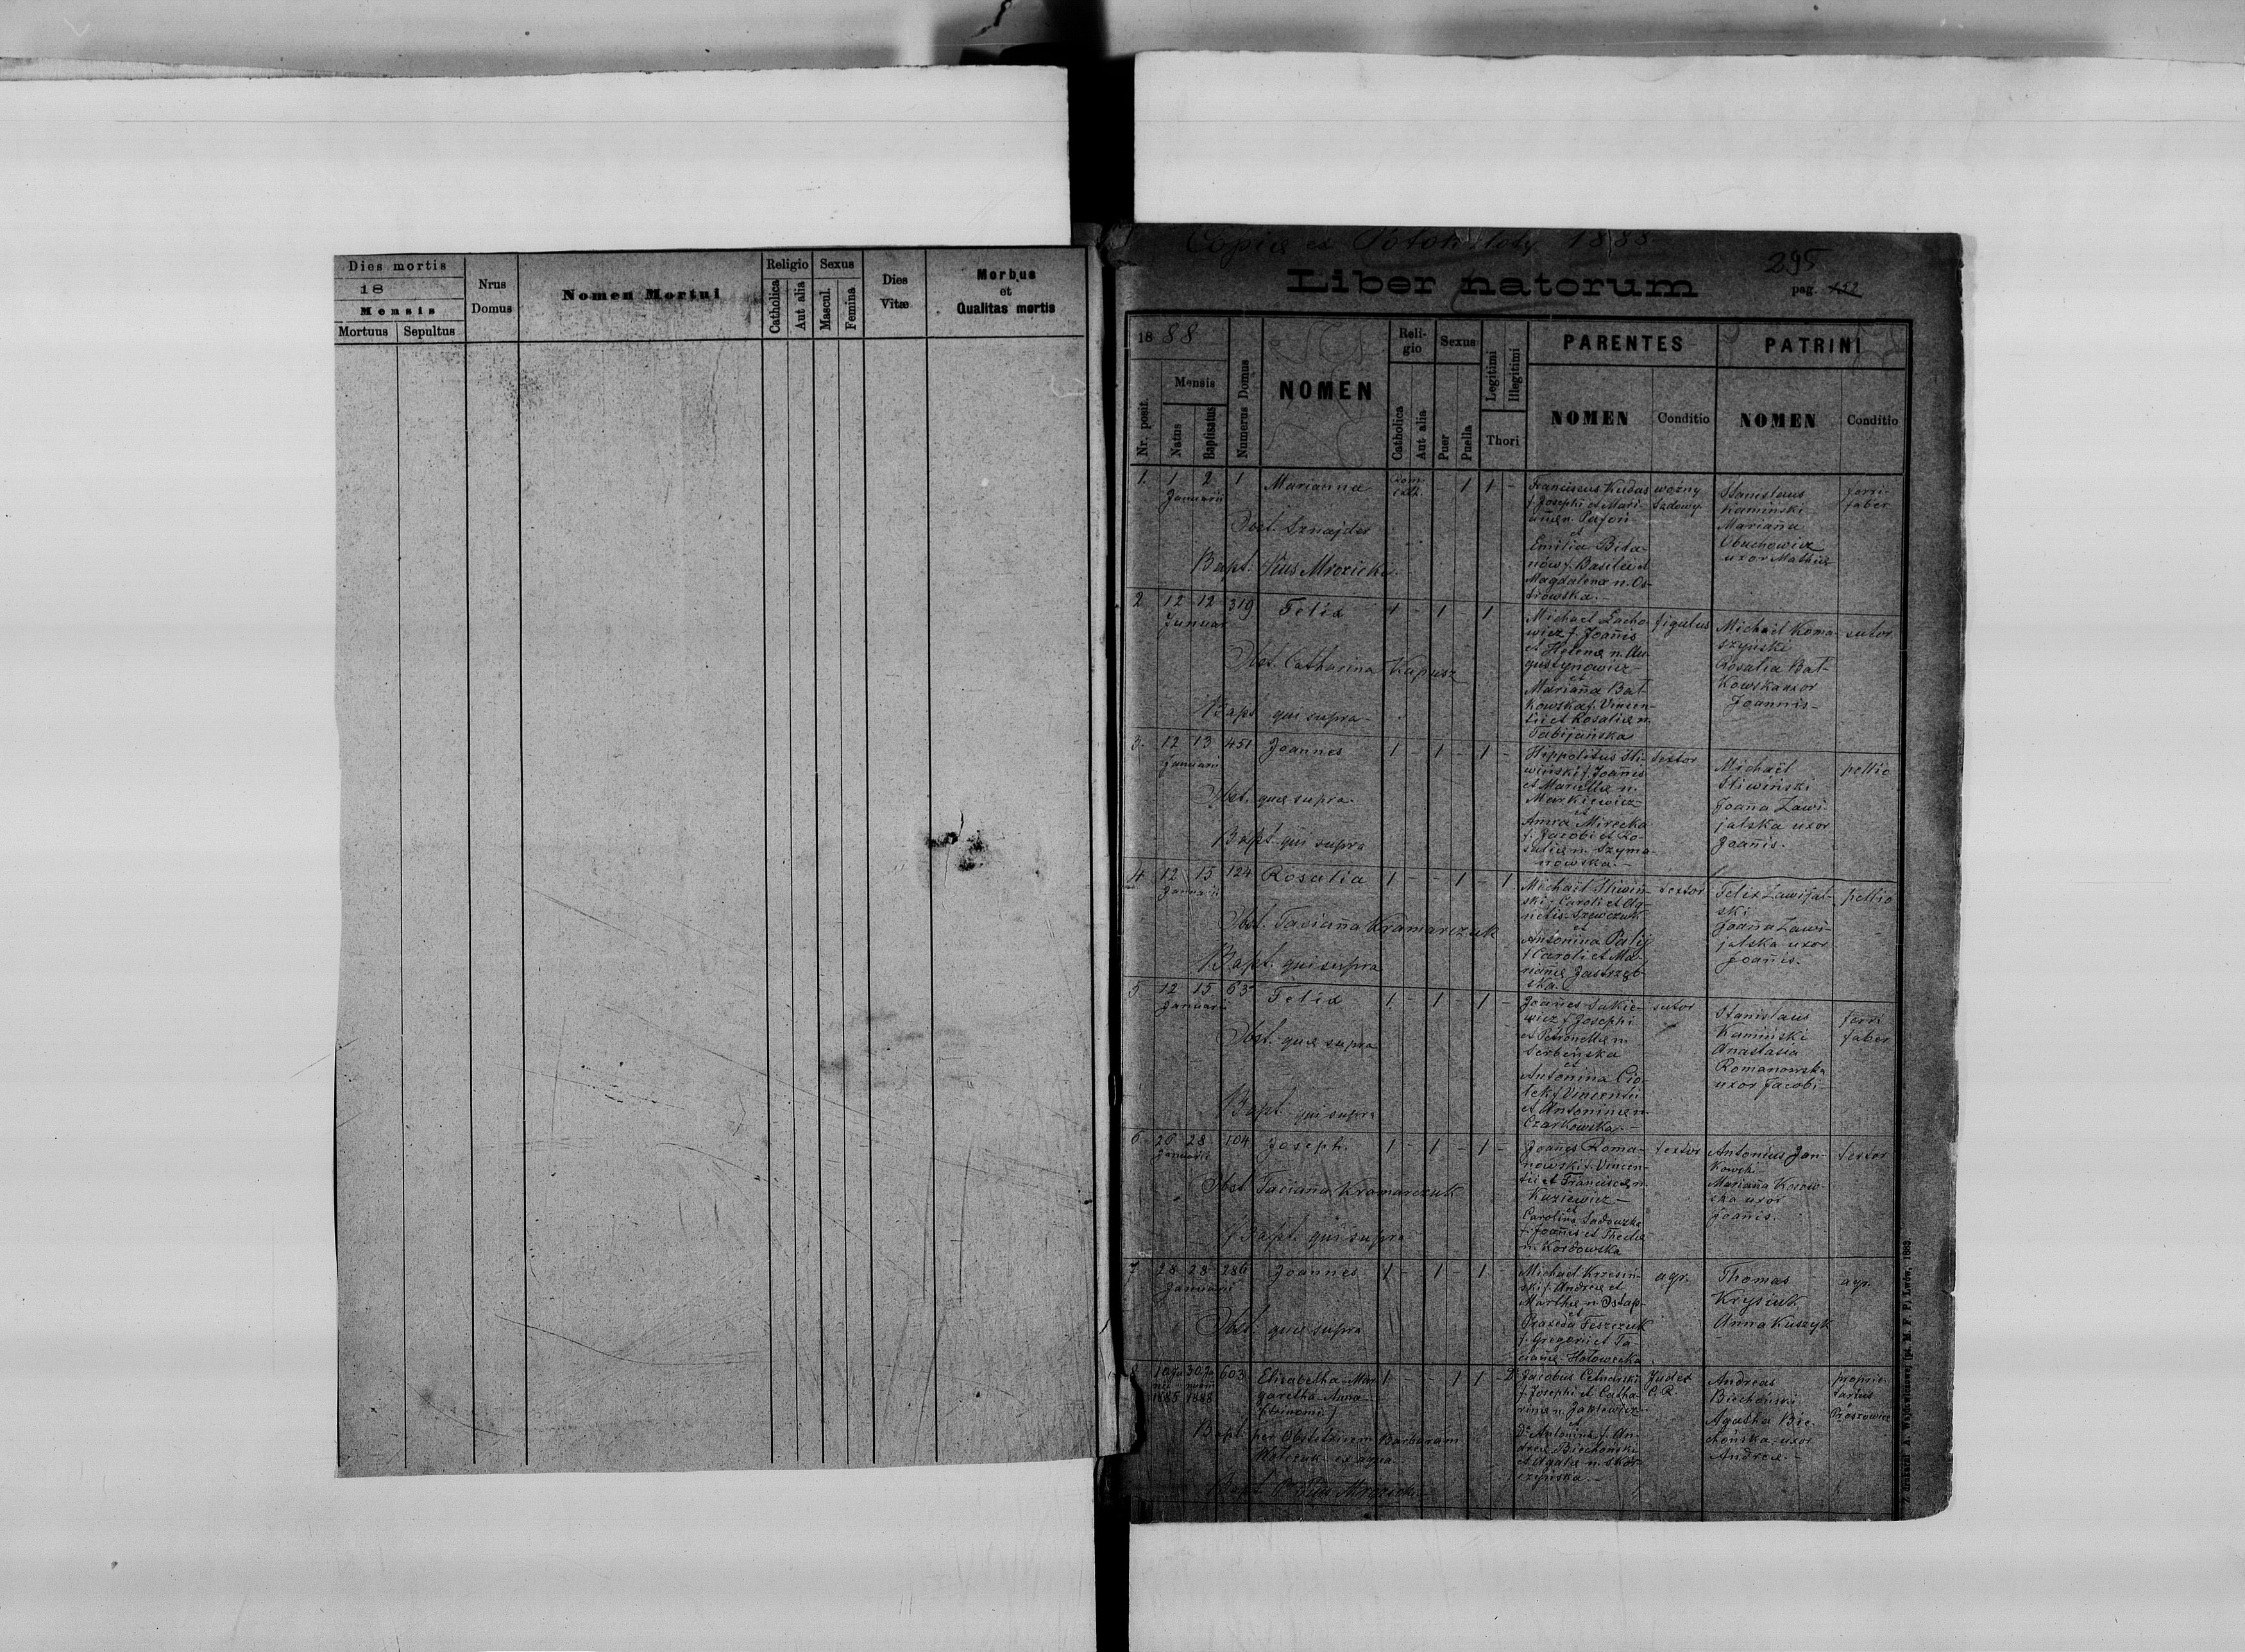 Dies mortis
18
Mensis
Mortuus Sepultus
Nrus
Domus
Nomen Mortui
Religio
Catholica
Aut alia
Sexus
Mascul.
Femina
Dies
Vitæ
Morbus
et
Qualitas mortis
Copia ex Potok złoty 1888
295
Liber natorum
pag. 152
1888
Nr. posit.
Mensis
Natus
Baptisatus
Numerus Domus
NOMEN
Reli-
gio
Catholica
Aut alia
Sexus
Puer
Puella
Legitimi
Illegitimi
Thori
PARENTES
NOMEN
Conditio
PATRINI
NOMEN
Conditio
1. 1 2 1 Marianna Rom. cath. - 1 1 -
Januarii
Obst. Sznajder
Bapt. Pius Mrozicki
Franciscus Kudas
f. Josephi et Mari-
annæ n.
et
Emilia
now f. Basilii et
Magdalena n. Os-
trowska.
woźny
sadowy
Stanislaus
Kaminski
Marianna
Obuchowicz
uxor Mathiæ
ferri-
faber
2 12 12 319 Felix 1 - 1 - 1
Januar
Obst. Catharina Kapusz
Bapt qui supra
Michael Lacho-
wicz f. Joannis
et Helenæ n. Au-
gustynowicz
et
Marianna Bat-
kowska f. Vincen-
tii et Rosaliæ n.
Tabijańska
figulus
Michael Roma-
szyński
Rosalia Bat-
kowska uxor
Joannis
sutor
3. 12 13 451 Joannes 1 - 1 - 1 -
Januarii
Obst. quæ supra
Bapt. qui supra
Hippolitus Śli-
wiński f. Joannis
et Mariellæ n.
Markiewicz
et
Anna Mirecka
f. Jacobi et Ro-
saliæ n. Szyma-
nowska.
textor
Michael
Śliwiński
Joanna Zawi-
jalska uxor
Joannis.
pellio
4 12 15 124 Rosalia 1 - - 1 - 1
Januarii
Obst. Tacianna Kramarczuk
Bapt. qui supra
Michael Śliwiń-
ski f. Caroli et Ag-
netis Szewczuk
et
Antonina Palij
f. Caroli et Ma-
riannæ Jastrzęb-
ska.
textor
Felix Zawijal-
ski
Joanna Zawi-
jalska uxor
Joannis.
pellio
5 12 15 63 Felix 1 - 1 - 1 -
Januarii
Obst. quæ supra
Bapt. qui supra
Joannes Sukie-
wicz f. Josephi
et Petronellæ n.
Serbeńska
et
Antonina Cio-
łek f. Vincentii
et Antoninæ n.
Czarkowska.
sutor
Stanislaus
Kamiński
Anastasia
Romanowska
uxor Jacobi
ferri
faber
6 26 28 104 Joseph. 1 - 1 - 1 -
Januarii
Obst Taciana Kramarczuk
Bapt. qui supra
Joannes Roma-
nowski f. Vincen-
tii et Franciscæ n.
Kuziewicz
et
Carolina Sadowska
f. Joannis et Theclæ
n. Kordowska
textor
Antonius Jan-
kowski
Marianna Kosow-
ska uxor
Joannis.
textor
7 28 28 286 Joannes 1 - 1 - 1
Januarii
Obst. quæ supra
Michael Krzesiń-
ski f. Andreæ et
Marthæ n. Ostap-
et
Praxeda Feszczuk
f. Gregorii et Ta-
ciannæ Hołowecka
agr.
Thomas
Krysiuk
Anna Kuszyk
agr.
8 603 Elisabetha-Mar-
1885 1888
garetha-Anna
(trinomi) 1 - - 1 1 -
Bapt. per Obstetricem Barbaram
ex aqua
Bapt. Pius Mrozicki
Dr Jacobus Cetnarski
f. Josephi et Catha-
rinæ n.
et
D. Antonina f. An-
dreæ Biechoński
et Agatæ n. Skór-
czyńska.
Judex
C. R.
Andreas
Biechoński
Agatha Bie-
chońska uxor
Andreæ.
proprie-
tarius